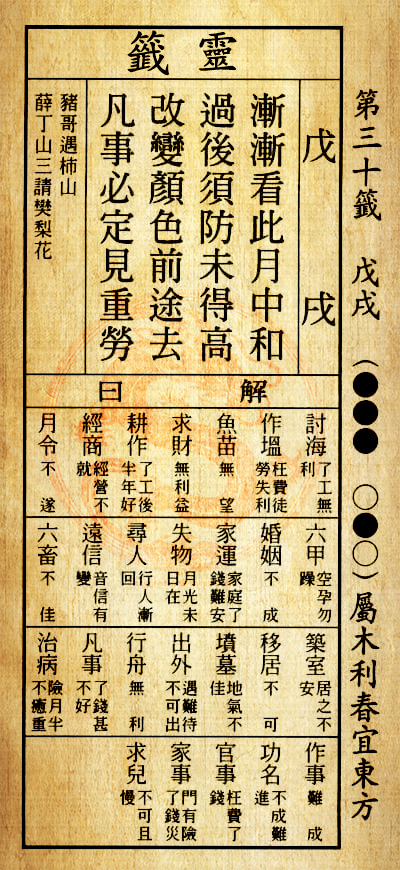 第三十籤 戊戌 (●●● ○●○)屬木利春宜東方
靈籤
戊戌
漸漸看此月中和
過後須防未得高
改變顏色前途去
凡事必定見重勞
豬哥遇柿山
薛丁山三請樊梨花
解曰
討海 了工無利
作塭 枉費徒勞失利
魚苗 無望
求財 無利益
耕作 了工後半年好
經商 經營不就
月令 不遂
六甲 空孕勿躁
婚姻 不成
家運 家庭了錢難安
失物 月光未日在
尋人 行人漸回
遠信 音信有變
六畜 不佳
築室 居之不安
移居 不可
墳墓 地氣不佳
出外 遇難待不可出
行舟 無利
凡事 了錢甚不好
治病 險月半不癒重
作事 難成
功名 不成難進
官事 枉費了錢
家事 門有險了錢災
求兒 不可且慢